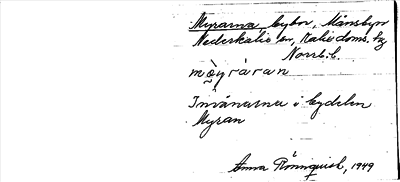 Myrarna bybor, Månsbyn
Nederkalix sn, Kalix doms. hg
Norrb. l.
mo̬y̆ràran
Invånarna i bydelen
Myran
Anna Rönnquist, 1949